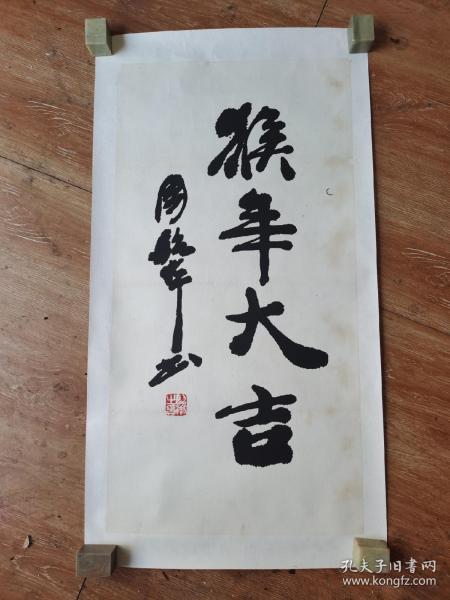 猴年大吉
周慧珺书
孔夫子旧书网
www.kongfz.com